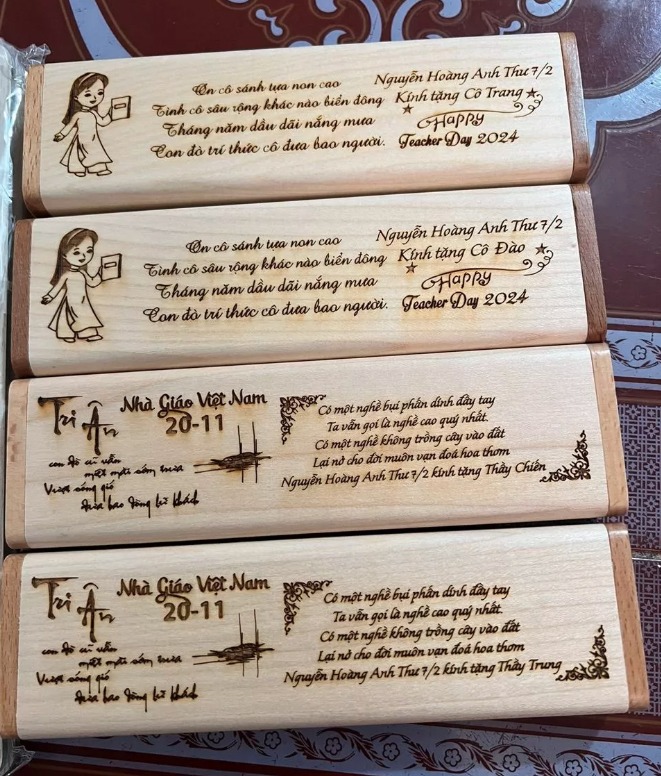 Ơn cô sánh tựa non cao
Tình cô sâu rộng khác nào biển đông
Tháng năm dầu dãi nắng mưa
Con đò trí thức cô đưa bao người.
Nguyễn Hoàng Anh Thư 7/2
Kính tặng Cô Trang
Happy
Teacher Day 2024
Ơn cô sánh tựa non cao
Tình cô sâu rộng khác nào biển đông
Tháng năm dầu dãi nắng mưa
Con đò trí thức cô đưa bao người.
Nguyễn Hoàng Anh Thư 7/2
Kính tặng Cô Đào
Happy
Teacher Day 2024
Tri Ân
Nhà Giáo Việt Nam
20-11
con đò cũ vẫn
miệt mài sớm trưa
Vượt sóng gió
đưa bao dòng lữ khách
Có một nghề bụi phấn dính đầy tay
Ta vẫn gọi là nghề cao quý nhất.
Có một nghề không trồng cây vào đất
Lại nở cho đời muôn vạn đoá hoa thơm
Nguyễn Hoàng Anh Thư 7/2 kính tặng Thầy Chiến
Tri Ân
Nhà Giáo Việt Nam
20-11
con đò cũ vẫn
miệt mài sớm trưa
Vượt sóng gió
đưa bao dòng lữ khách
Có một nghề bụi phấn dính đầy tay
Ta vẫn gọi là nghề cao quý nhất.
Có một nghề không trồng cây vào đất
Lại nở cho đời muôn vạn đoá hoa thơm
Nguyễn Hoàng Anh Thư 7/2 kính tặng Thầy Trung